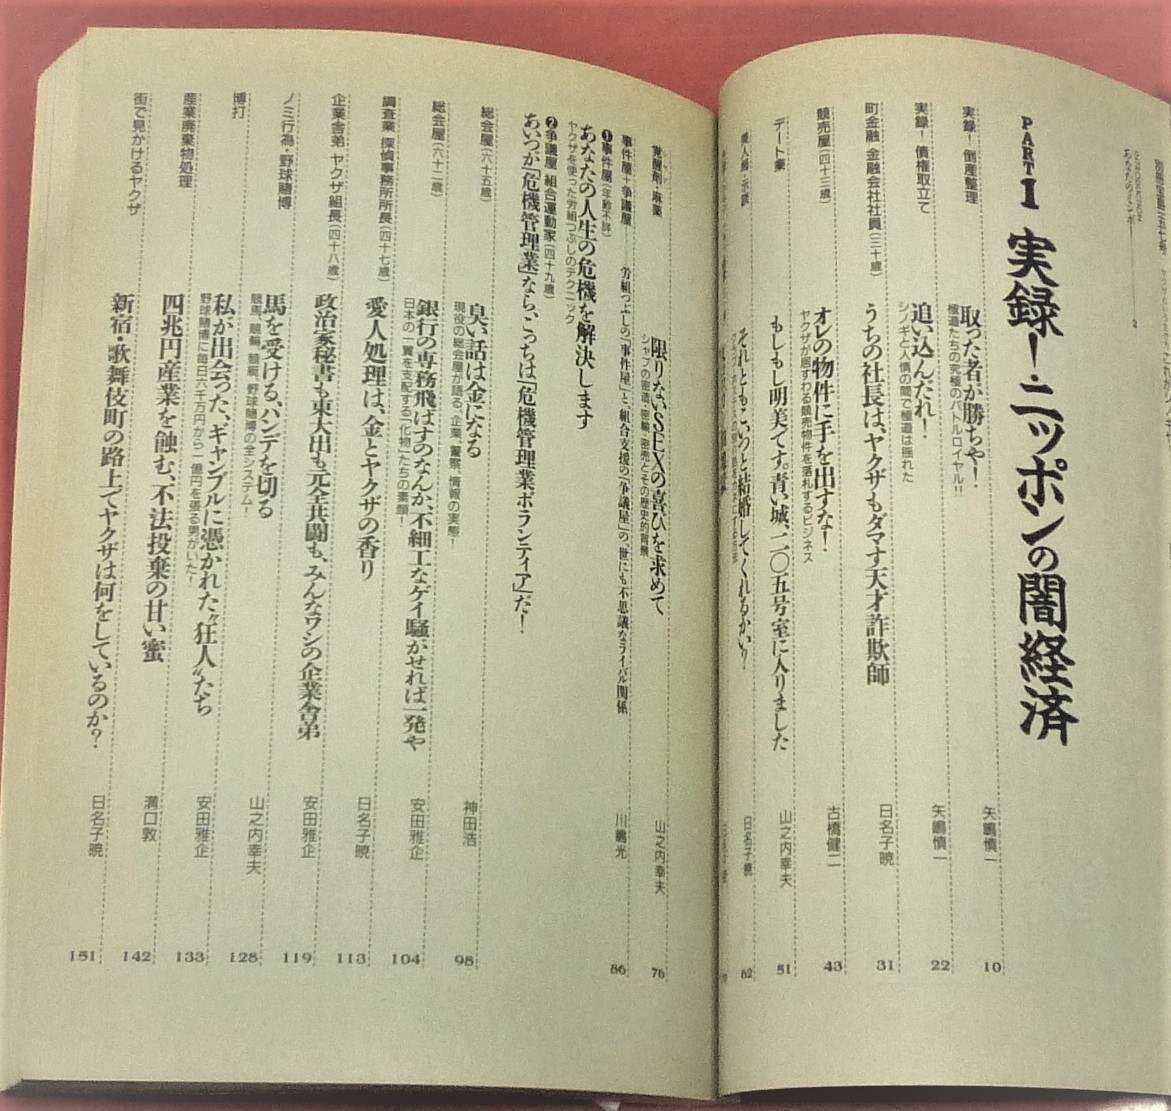 PART1 実録!ニッポンの闇経済
実録!倒産整理
取った者が勝ちや!
極道たちの究極のバトルロイヤル!!
矢嶋慎一
10
実録!債権取立て
追い込んだれ!
シノギと人情の間で極道は揺れた
矢嶋慎一
22
町金融 金融会社社員(三十歳)
うちの社長は、ヤクザもダマす天才詐欺師
日名子暁
31
競売屋(四十三歳)
オレの物件に手を出すな!
ヤクザが居すわる競売物件を落札するビジネス
古橋健二
43
デート業
もしもし明美です。青い城、二〇五号室に入りました
山之内幸夫
51
それともこいつと結婚してくれるかい?
日名子暁
62
覚醒剤・麻薬
限りないSEXの喜びを求めて
シャブの密造・密輸・密売とその歴史的背景
山之内幸夫
76
事件屋+争議屋
労組つぶしの「事件屋」と、組合支援の「争議屋」の、世にも不思議なライバル関係
川嶋光
86
❶事件屋(年齢不詳)
あなたの人生の危機を解決します
ヤクザを使った労組つぶしのテクニック
❷争議屋 組合運動家(四十九歳)
あいつが「危機管理業」なら、こっちは「危機管理業ボランティア」だ!
総会屋(六十五歳)
臭い話は金になる
現役の総会屋が語る、企業、警察、情報の実態!
神田浩
98
総会屋(六十二歳)
銀行の専務飛ばすのなんか、不細工なゲイ騒がせれば一発や
日本の一翼を支配する「化物」たちの素顔!
安田雅企
104
調査業 探偵事務所所長(四十七歳)
愛人処理は、金とヤクザの香り
日名子暁
113
企業舎弟 ヤクザ組長(四十八歳)
政治家秘書も東大出も元全共闘も、みんなワシの企業舎弟
安田雅企
119
ノミ行為・野球賭博
馬を受ける、ハンデを切る
競馬、競輪、競艇、野球賭博の全システム!
山之内幸夫
128
博打
私が出会った、ギャンブルに憑かれた"狂人"たち
野球賭博に毎日六千万円から一億円を張る男がいた!
安田雅企
133
産業廃棄物処理
四兆円産業を蝕む、不法投棄の甘い蜜
溝口敦
142
街で見かけるヤクザ
新宿・歌舞伎町の路上でヤクザは何をしているのか?
日名子暁
151